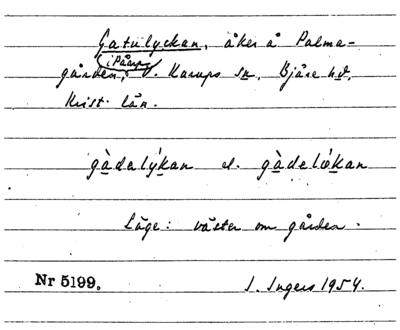 Gatulyckan, åker å Palma-
i Påarp
gården, V. Karups sn, Bjäre hd,
Krist. län.
gàdelýkan el. gàdelǿkan
Läge: väster om gården.
Nr 5199.
I. Ingers 1954.